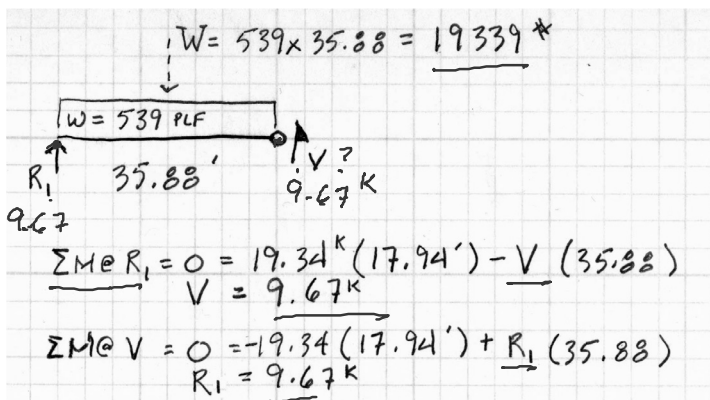 W = 539 x 35.88 = 19339 #
w = 539 PLF
R₁ 35.88' V ?
9.67 9.67 K
ΣM@ R₁ = 0 = 19.34ᴷ (17.94') - V (35.88)
V = 9.67ᴷ
ΣM@ V = 0 = -19.34 (17.94') + R₁ (35.88)
R₁ = 9.67ᴷ